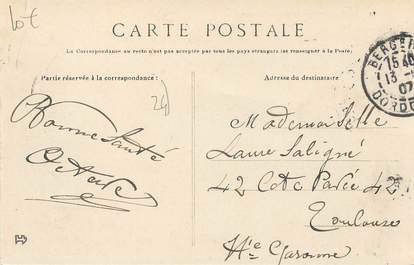 lot
CARTE POSTALE
La Correspondance au recto n'est pas acceptée par tous les pays étrangers (se renseigner à la Poste)
Partie réservée à la correspondance:
Adresse du destinataire
BERGER
15 40
13
07
DORDO
24
Bonne Santé
Octavie
Mademoiselle
Laure Saligné
42 Cote Pavée 42
Toulouse
Hte Garonne